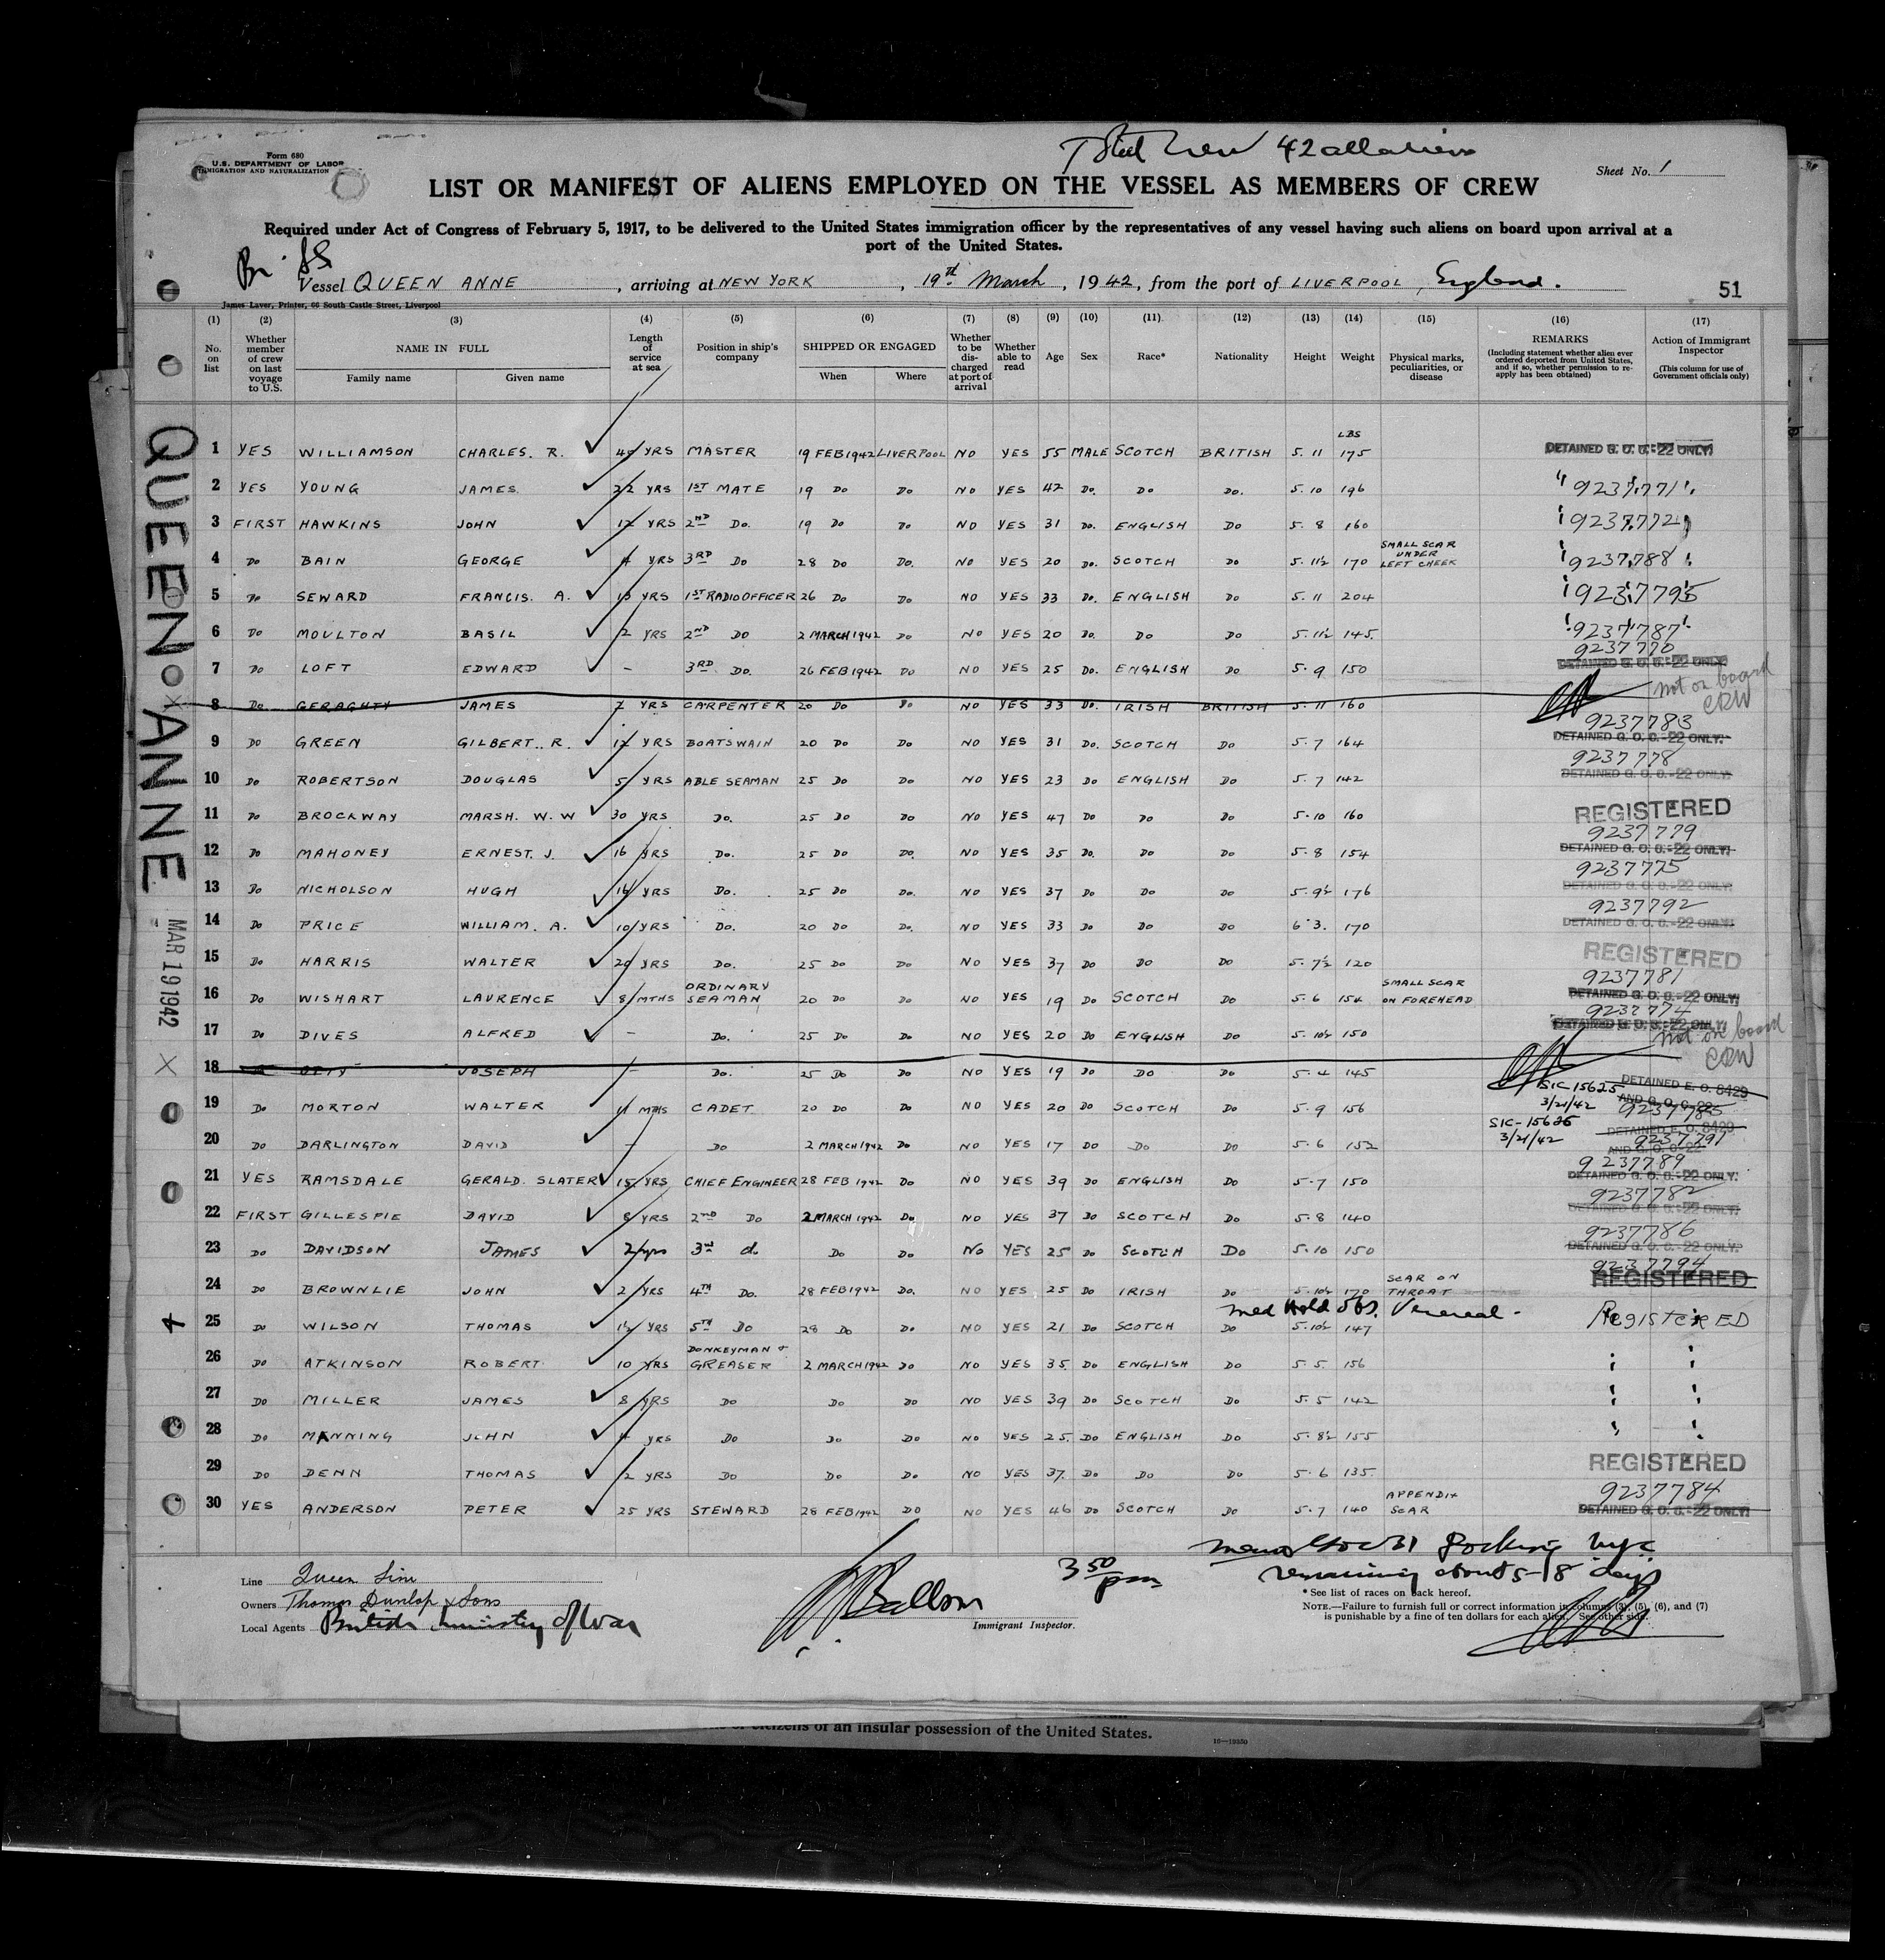 Form 680
U.S. DEPARTMENT OF LABOR
IMMIGRATION AND NATURALIZATION
Total Crew 42 all aliens
Sheet No. 1
LIST OR MANIFEST OF ALIENS EMPLOYED ON THE VESSEL AS MEMBERS OF CREW
Required under Act of Congress of February 5, 1917, to be delivered to the United States immigration officer by the representatives of any vessel having such aliens on board upon arrival at a
port of the United States.
Br. SS
Vessel QUEEN ANNE, arriving at NEW YORK, 19th March, 1942, from the port of LIVERPOOL, England.
51
James Laver, Printer, 66 South Castle Street, Liverpool
(1) (2) (3) (4) (5) (6) (7) (8) (9) (10) (11) (12) (13) (14) (15) (16) (17)
No. on list
Whether member of crew on last voyage to U.S.
NAME IN FULL
Family name Given name
Length of service at sea
Position in ship's company
SHIPPED OR ENGAGED
When Where
Whether to be discharged at port of arrival
Whether able to read
Age Sex Race* Nationality Height Weight
Physical marks, peculiarities, or disease
REMARKS
(Including statement whether alien ever ordered deported from United States, and if so, whether permission to re-apply has been obtained)
Action of Immigrant Inspector
(This column for use of Government officials only)
QUEEN ANNE
MAR 19 1942
LBS
1 YES WILLIAMSON CHARLES. R. YRS MASTER 19 FEB 1942 LIVERPOOL NO YES 55 MALE SCOTCH BRITISH 5. 11 175 DETAINED G. O. C.-22 ONLY.
2 YES YOUNG JAMES 22 YRS 1ST MATE 19 Do Do NO YES 42 Do. Do Do. 5. 10 196 " 9237771 "
3 FIRST HAWKINS JOHN 12 YRS 2ND Do. 19 Do Do NO YES 31 Do. ENGLISH Do 5. 8 160 9237772
4 Do BAIN GEORGE 4 YRS 3RD Do 28 Do Do. NO YES 20 Do. SCOTCH Do 5. 11½ 170 SMALL SCAR UNDER LEFT CHEEK 9237788
5 Do SEWARD FRANCIS. A. 13 YRS 1ST RADIO OFFICER 26 Do Do NO YES 33 Do. ENGLISH Do 5. 11 204 9237795
6 Do MOULTON BASIL 2 YRS 2ND DO 2 MARCH 1942 Do NO YES 20 Do. Do Do 5. 11½ 145. 9237787
7 Do LOFT EDWARD - 3RD Do. 26 FEB 1942 Do NO YES 25 Do. ENGLISH Do 5. 9 150 9237770 DETAINED G. O. C.-22 ONLY.
8 Do GERAGHTY JAMES 7 YRS CARPENTER 20 Do Do NO YES 33 Do. IRISH BRITISH 5. 11 160 not on board CRW
9 DO GREEN GILBERT. R. 12 YRS BOATSWAIN 20 Do Do NO YES 31 Do. SCOTCH Do 5. 7 164 9237783 DETAINED G. O. C.-22 ONLY.
10 Do ROBERTSON DOUGLAS 5 YRS ABLE SEAMAN 25 Do Do NO YES 23 Do ENGLISH Do 5. 7 142 9237778 DETAINED G. O. C.-22 ONLY.
11 Do BROCKWAY MARSH. W. W 30 YRS Do. 25 Do Do NO YES 47 Do Do Do 5. 10 160 REGISTERED
12 Do MAHONEY ERNEST. J. 16 YRS Do. 25 Do Do. NO YES 35 Do. Do Do 5. 8 154 9237779 DETAINED G. O. C.-22 ONLY.
13 Do NICHOLSON HUGH 14 YRS Do. 25 Do Do. NO YES 37 Do Do Do 5. 9½ 176 9237775 DETAINED G. O. C.-22 ONLY.
14 Do PRICE WILLIAM. A. 10 YRS Do. 20 Do Do. NO YES 33 Do Do Do 6 3. 170 9237792 DETAINED G. O. C.-22 ONLY.
15 Do HARRIS WALTER 20 YRS Do. 25 Do Do NO YES 37 Do Do Do 5. 7½ 120 REGISTERED
16 Do WISHART LAURENCE 8 MTHS ORDINARY SEAMAN 20 Do Do NO YES 19 Do SCOTCH Do 5. 6 154 SMALL SCAR ON FOREHEAD 9237781 DETAINED G. O. C.-22 ONLY.
17 Do DIVES ALFRED - Do. 25 Do Do NO YES 20 Do ENGLISH Do 5. 10½ 150 9237774 DETAINED G. O. C.-22 ONLY.
18 JOSEPH - Do. 25 Do Do NO YES 19 Do Do Do 5. 4 145 not on board CRW
19 Do MORTON WALTER 11 MTHS CADET 20 Do Do NO YES 20 Do SCOTCH Do 5. 9 156 SIC 15625 3/21/42 DETAINED E. O. 8429 AND G. O. C.-22 9237785
20 Do DARLINGTON DAVID - Do 2 MARCH 1942 Do NO YES 17 Do Do Do 5. 6 152 SIC-15626 3/21/42 DETAINED E. O. 8429 AND G. O. C-22 9237791
21 YES RAMSDALE GERALD. SLATER 15 YRS CHIEF ENGINEER 28 FEB 1942 Do NO YES 39 Do ENGLISH Do 5. 7 150 9237789 DETAINED G. O. C.-22 ONLY.
22 FIRST GILLESPIE DAVID 8 YRS 2ND Do 2 MARCH 1942 Do NO YES 37 Do SCOTCH Do 5. 8 140 9237782 DETAINED G. O. C.-22 ONLY.
23 Do DAVIDSON JAMES 2 yrs 3rd do Do Do No YES 25 Do SCOTCH Do 5. 10 150 9237786 DETAINED G. O. C.-22 ONLY.
24 Do BROWNLIE JOHN 2 YRS 4TH Do. 28 FEB 1942 Do. NO YES 25 Do IRISH Do 5. 10½ 170 SCAR ON THROAT 9237794 REGISTERED
med Hold obs. Venereal -
25 Do WILSON THOMAS 1½ YRS 5TH Do 28 Do Do NO YES 21 Do SCOTCH Do 5. 10½ 147 REGISTERED
26 Do ATKINSON ROBERT 10 YRS DONKEYMAN & GREASER 2 MARCH 1942 Do NO YES 35. Do ENGLISH Do 5. 5. 156 " "
27 Do MILLER JAMES 8 YRS Do Do Do NO YES 39 Do SCOTCH Do 5. 5 142 " "
28 Do MANNING JOHN 4 YRS Do Do Do NO YES 25. Do ENGLISH Do 5. 8½ 155 " "
29 Do DENN THOMAS 2 YRS Do Do Do NO YES 37. Do Do Do 5. 6 135. REGISTERED
30 YES ANDERSON PETER 25 YRS STEWARD 28 FEB 1942 DO NO YES 46 Do SCOTCH Do 5. 7 140 APPENDIX SCAR 9237784 DETAINED G. O. C.-22 ONLY.
Line Queen Line
Owners Thomas Dunlop & Sons
Local Agents British Ministry of War
Immigrant Inspector.
3 50 pm
remaining about 5-18 days
* See list of races on back hereof.
NOTE.—Failure to furnish full or correct information in columns (3), (5), (6), and (7)
is punishable by a fine of ten dollars for each alien. See other side.
citizens of an insular possession of the United States.
16—19350